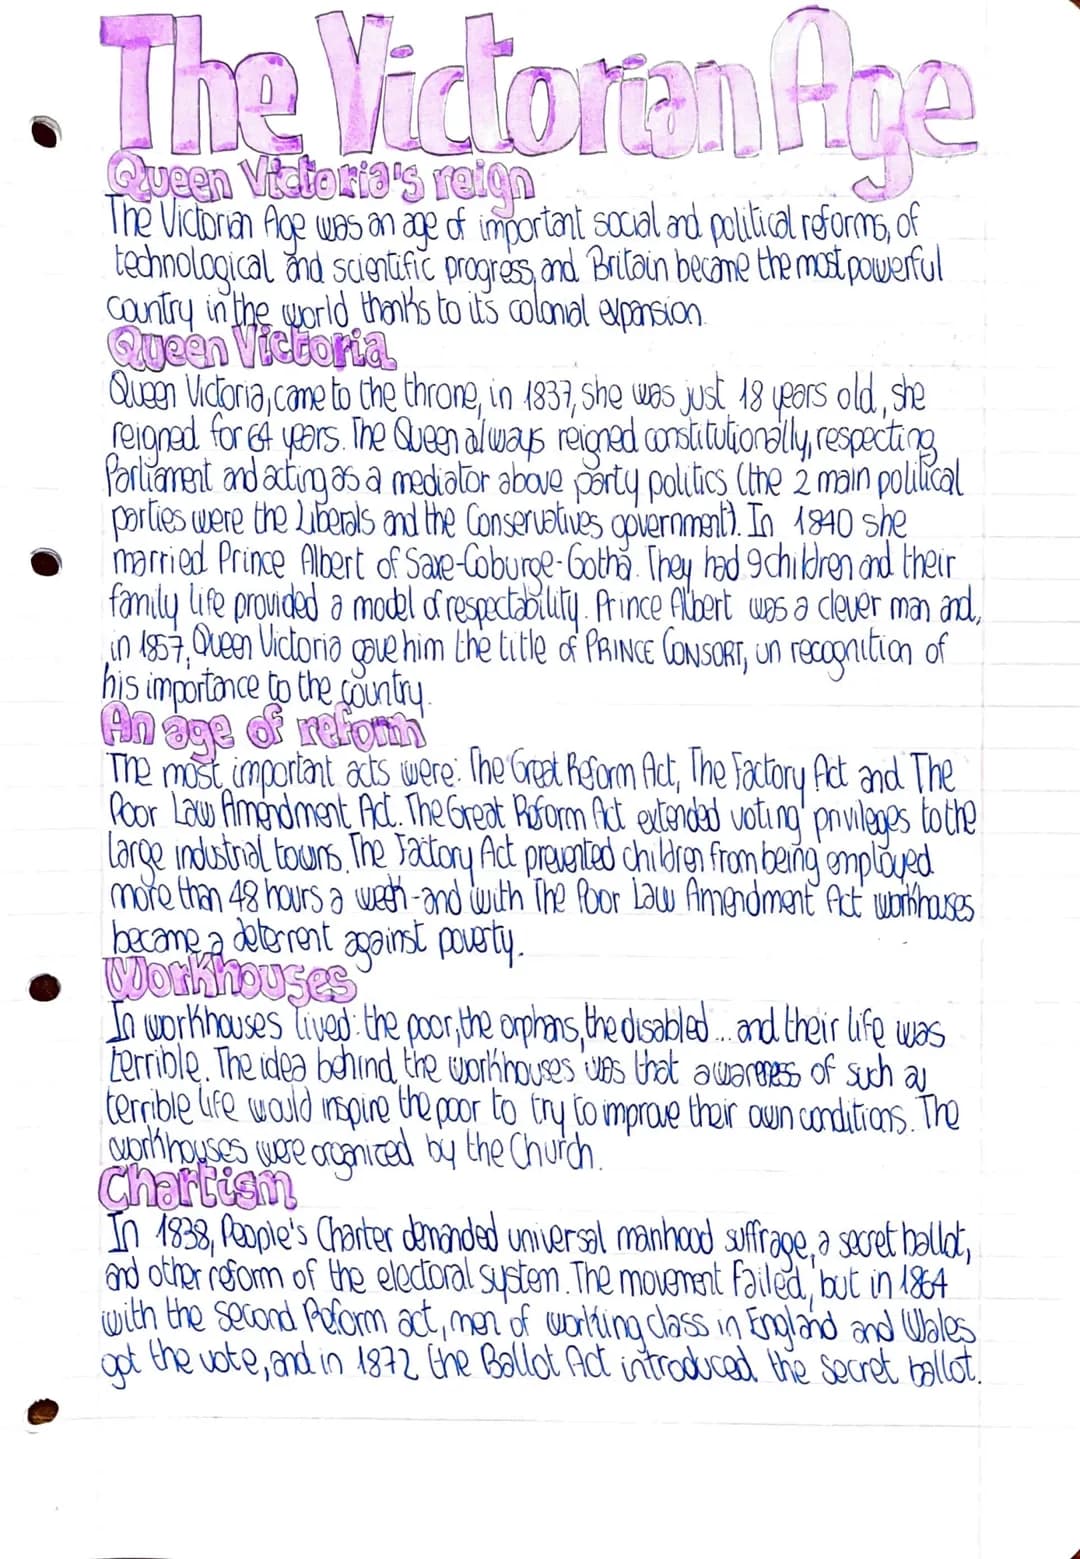 The Victorian Age
Queen Victoria's reign
The Victorian Age was an age of important social and political reforms, of
technological and scientific progress, and Britain became the most powerful
country in the world thanks to its colonial expansion.
Queen Victoria
Queen Victoria, came to the throne, in 1837, she was just 18 years old, she
reigned for 64 years. The Queen always reigned constitutionally, respecting
Parliament and acting as a mediator above party politics (the 2 main political
parties were the Liberals and the Conservatives government). In 1840 she
married Prince Albert of Saxe-Coburge-Gotha. They had 9 children and their
family life provided a model of respectability. Prince Albert was a clever man and,
in 1857, Queen Victoria gave him the title of PRINCE CONSORT, un recognition of
his importance to the country.
An age of reform
The most important acts were: The Great Reform Act, The Factory Act and The
Poor Law Amendment Act. The Great Reform Act extended voting privileges to the
large industrial towns. The Factory Act prevented children from being employed
more than 48 hours a week-and with The Poor Law Amendment Act workhouses
became a deterrent against poverty.
Workhouses
In workhouses lived: the poor, the orphans, the disabled... and their life was
terrible. The idea behind the workhouses was that awareness of such a
terrible life would inspire the poor to try to improve their own conditions. The
workhouses were organized by the Church.
Chartism
In 1838, People's Charter demanded universal manhood suffrage, a secret ballot,
and other reform of the electoral system. The movement failed, but in 1864
with the Second Reform act, men of working class in England and Wales
got the vote, and in 1872 the Ballot Act introduced the secret ballot.